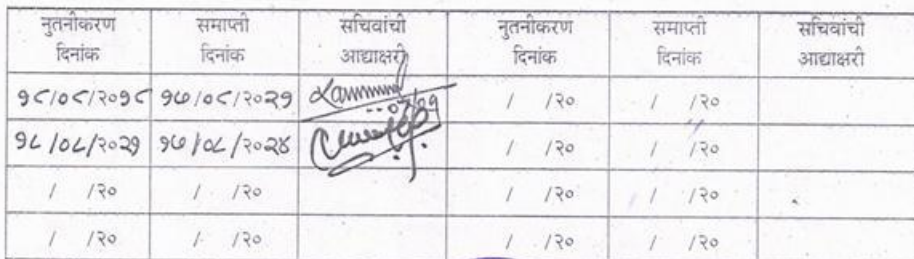 नुतनीकरण दिनांक समाप्ती दिनांक सचिवांची आद्याक्षरी नुतनीकरण दिनांक समाप्ती दिनांक सचिवांची आद्याक्षरी
१८/०८/२०१८ १७/०८/२०२१ / /२० / /२०
१८/०८/२०२१ १७/०८/२०२४ / /२० / /२०
/ /२० / /२० / /२० / /२०
/ /२० / /२० / /२० / /२०